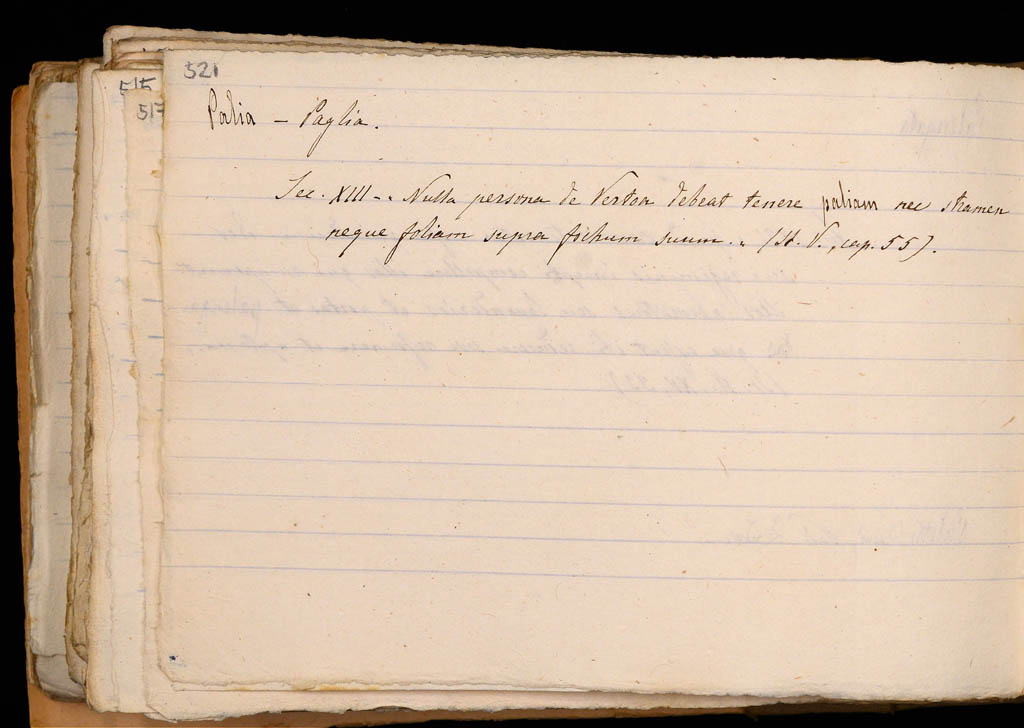 521
515
517
Palia - Paglia.
Sec. XIII - „ Nulla persona de Vertoa debeat tenere paliam nec stramen
neque foliam supra fichum suum. „ (St. V., cap. 55).